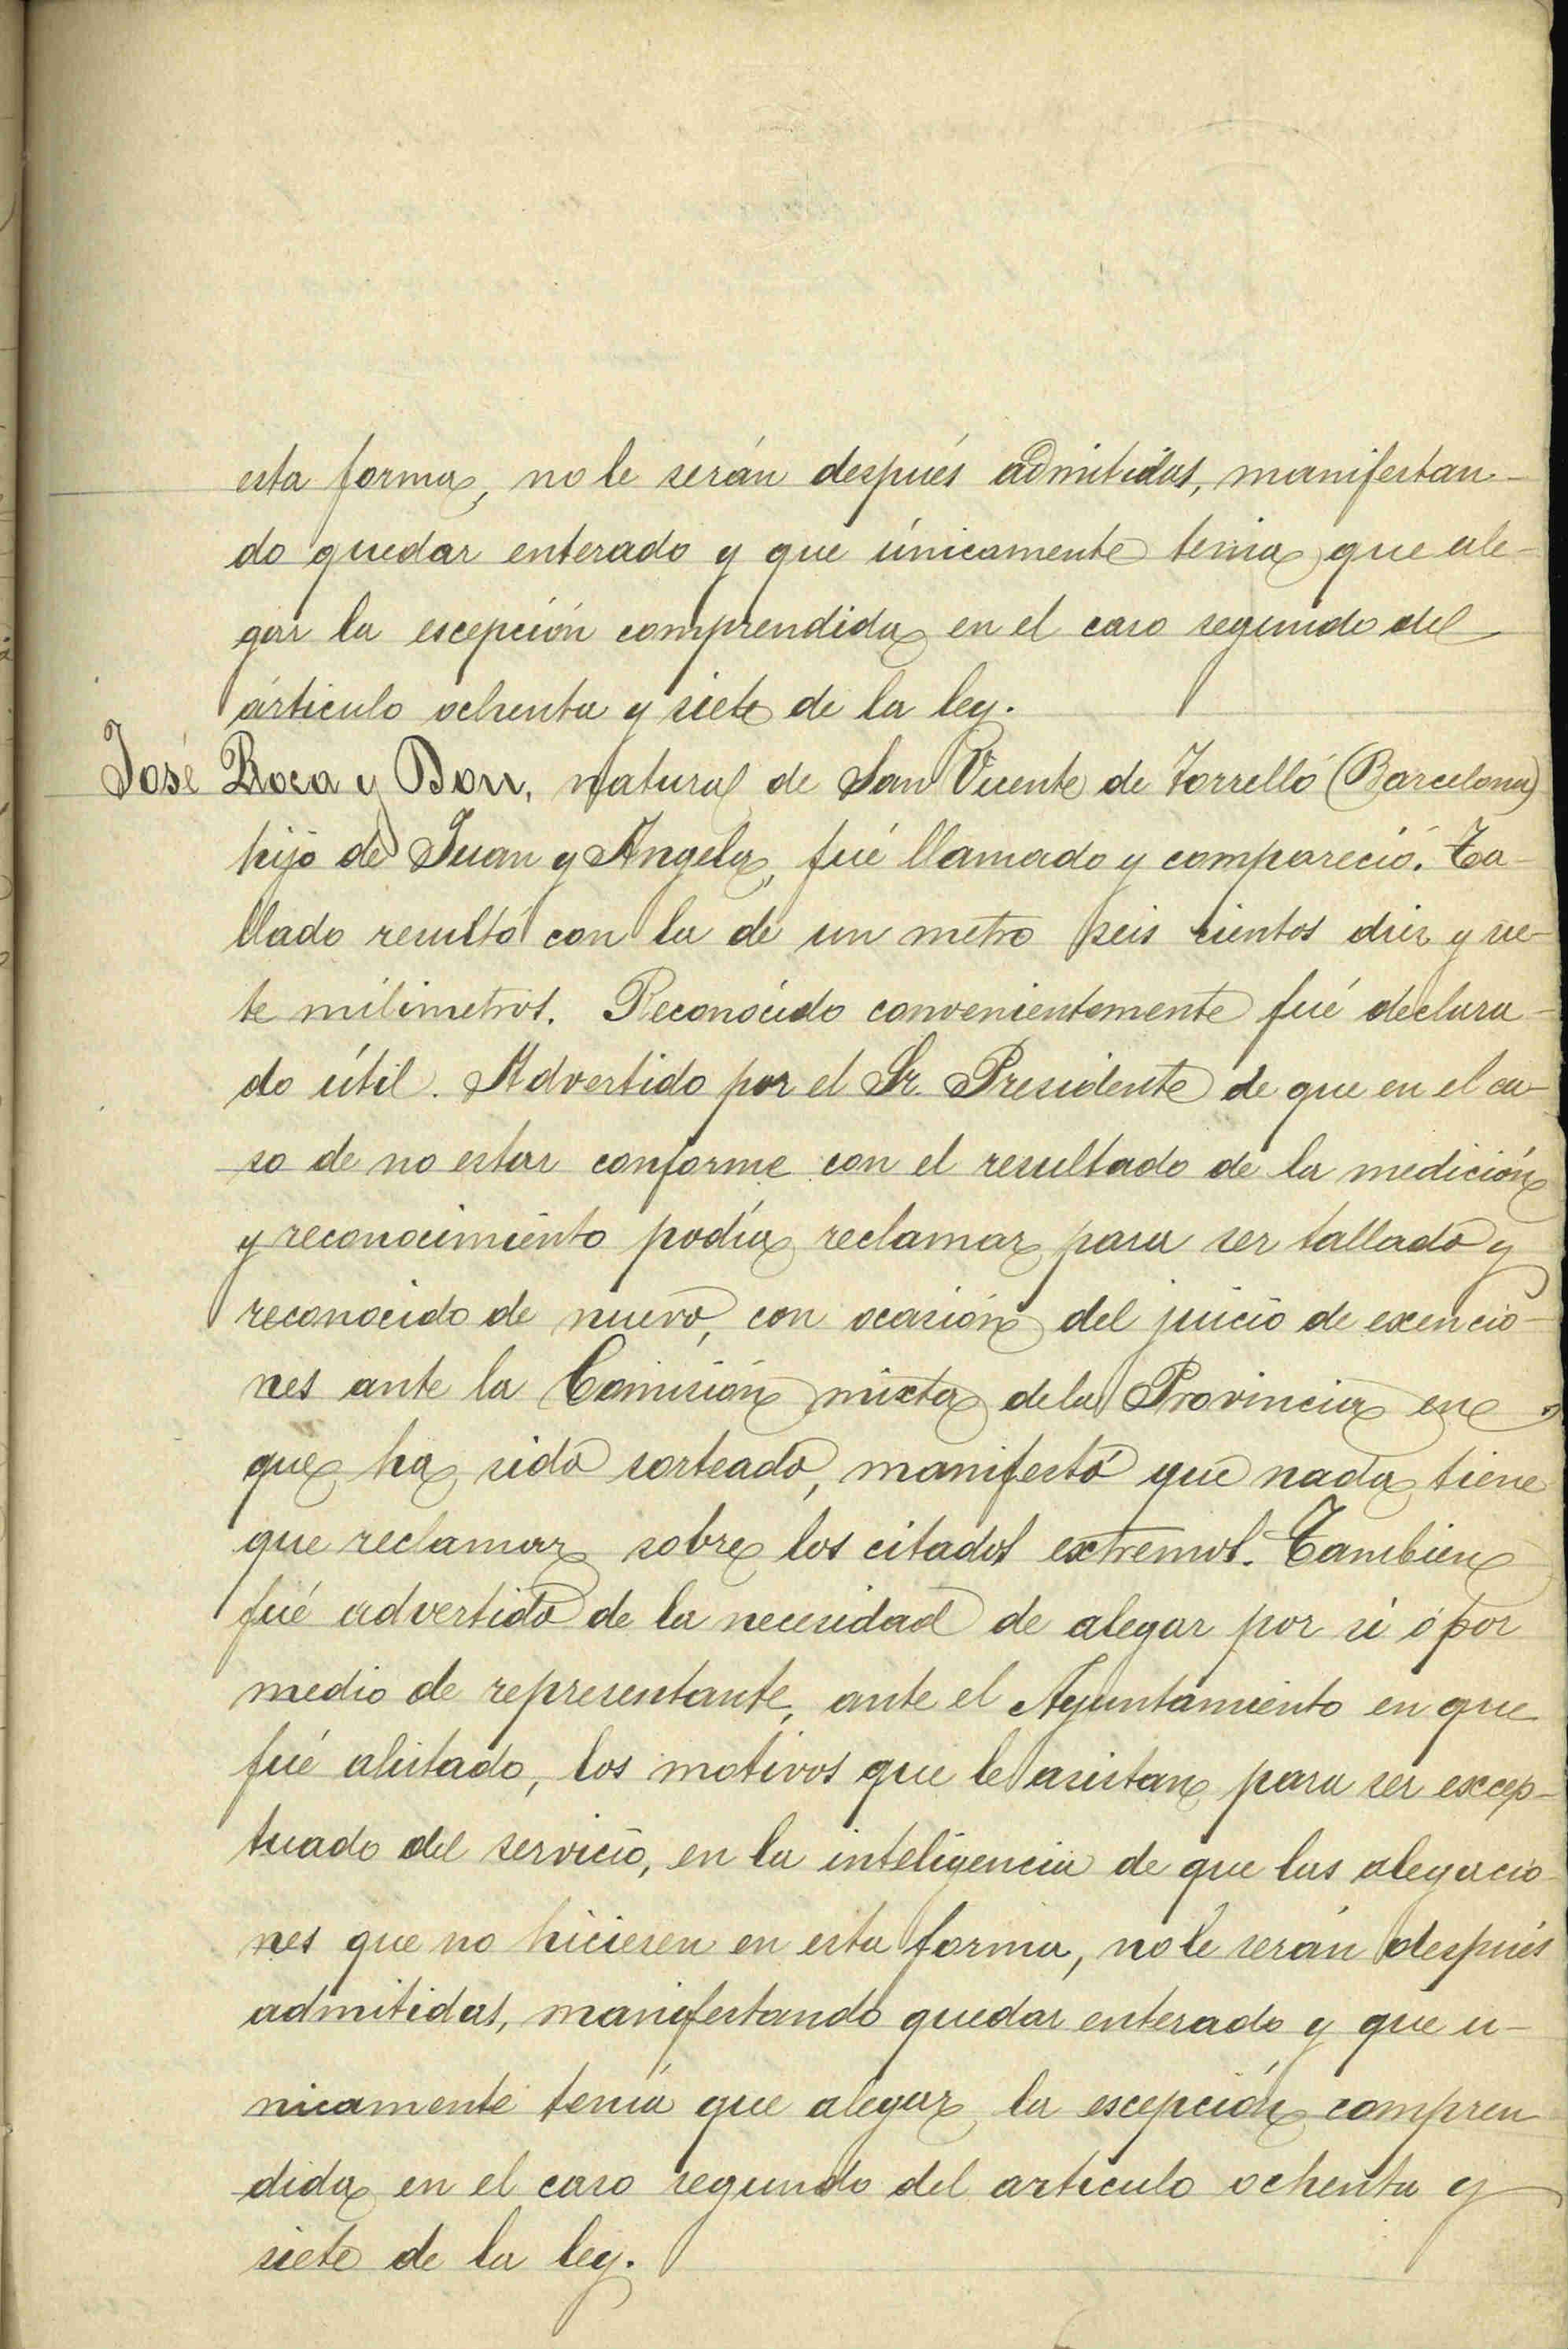 esta forma, no le serán después admitidas, manifestan-
do quedar enterado y que únicamente tenia que ale-
gar la escepción comprendida en el caso segundo del
artículo ochenta y siete de la ley.
José Roca y Bou, natural de San Vicente de Torrelló (Barcelona)
hijo de Juan y Angela, fué llamado y compareció. Ta-
llado resultó con la de un metro seis cientos diez y sie-
te milimetros. Reconocido convenientemente fué declara-
do útil. Advertido por el Sr. Presidente de que en el ca-
so de no estar conforme con el resultado de la medición
y reconocimiento podía reclamar para ser tallado y
reconocido de nuevo, con ocasión del juicio de exencio-
nes ante la Comisión mixta de la Provincia en
que ha sido sorteado, manifestó que nada tiene
que reclamar sobre los citados extremos. Tambien
fué advertido de la necesidad de alegar por si ó por
medio de representante, ante el Ayuntamiento en que
fué alistado, los motivos que le asistan para ser excep-
tuado del servicio, en la inteligencia de que las alegacio-
nes que no hiciesen en esta forma, no le serán después
admitidas, manifestando quedar enterado y que u-
nicamente tenía que alegar la escepción compren
dida en el caso segundo del artículo ochenta y
siete de la ley.